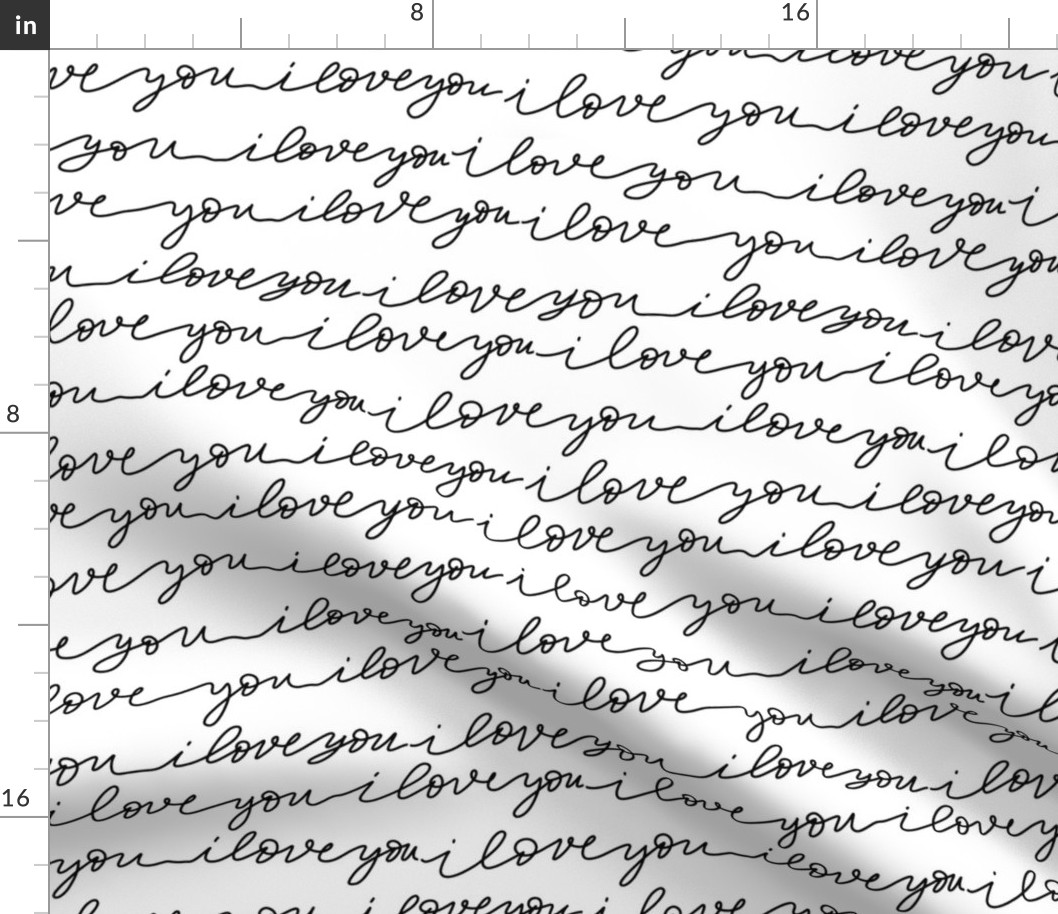 in 8 16
you i love you
ve you i love you i love you i love you
you i love you i love you i love you i
ve you i love you i love you i love you
u i love you i love you i love you i lov
love you i love you i love you i love yo
8
ou i love you i love you i love you i lo
love you i love you i love you i love you
ve you i love you i love you i love you i
ove you i love you i love you i love you i
e you i love you i love you i love you i l
love you i love you i love you i love you
you i love you i love you i love you i lov
16
i love you i love you i love you i love y
you i love you i love you i love you i lo
i love you i love you